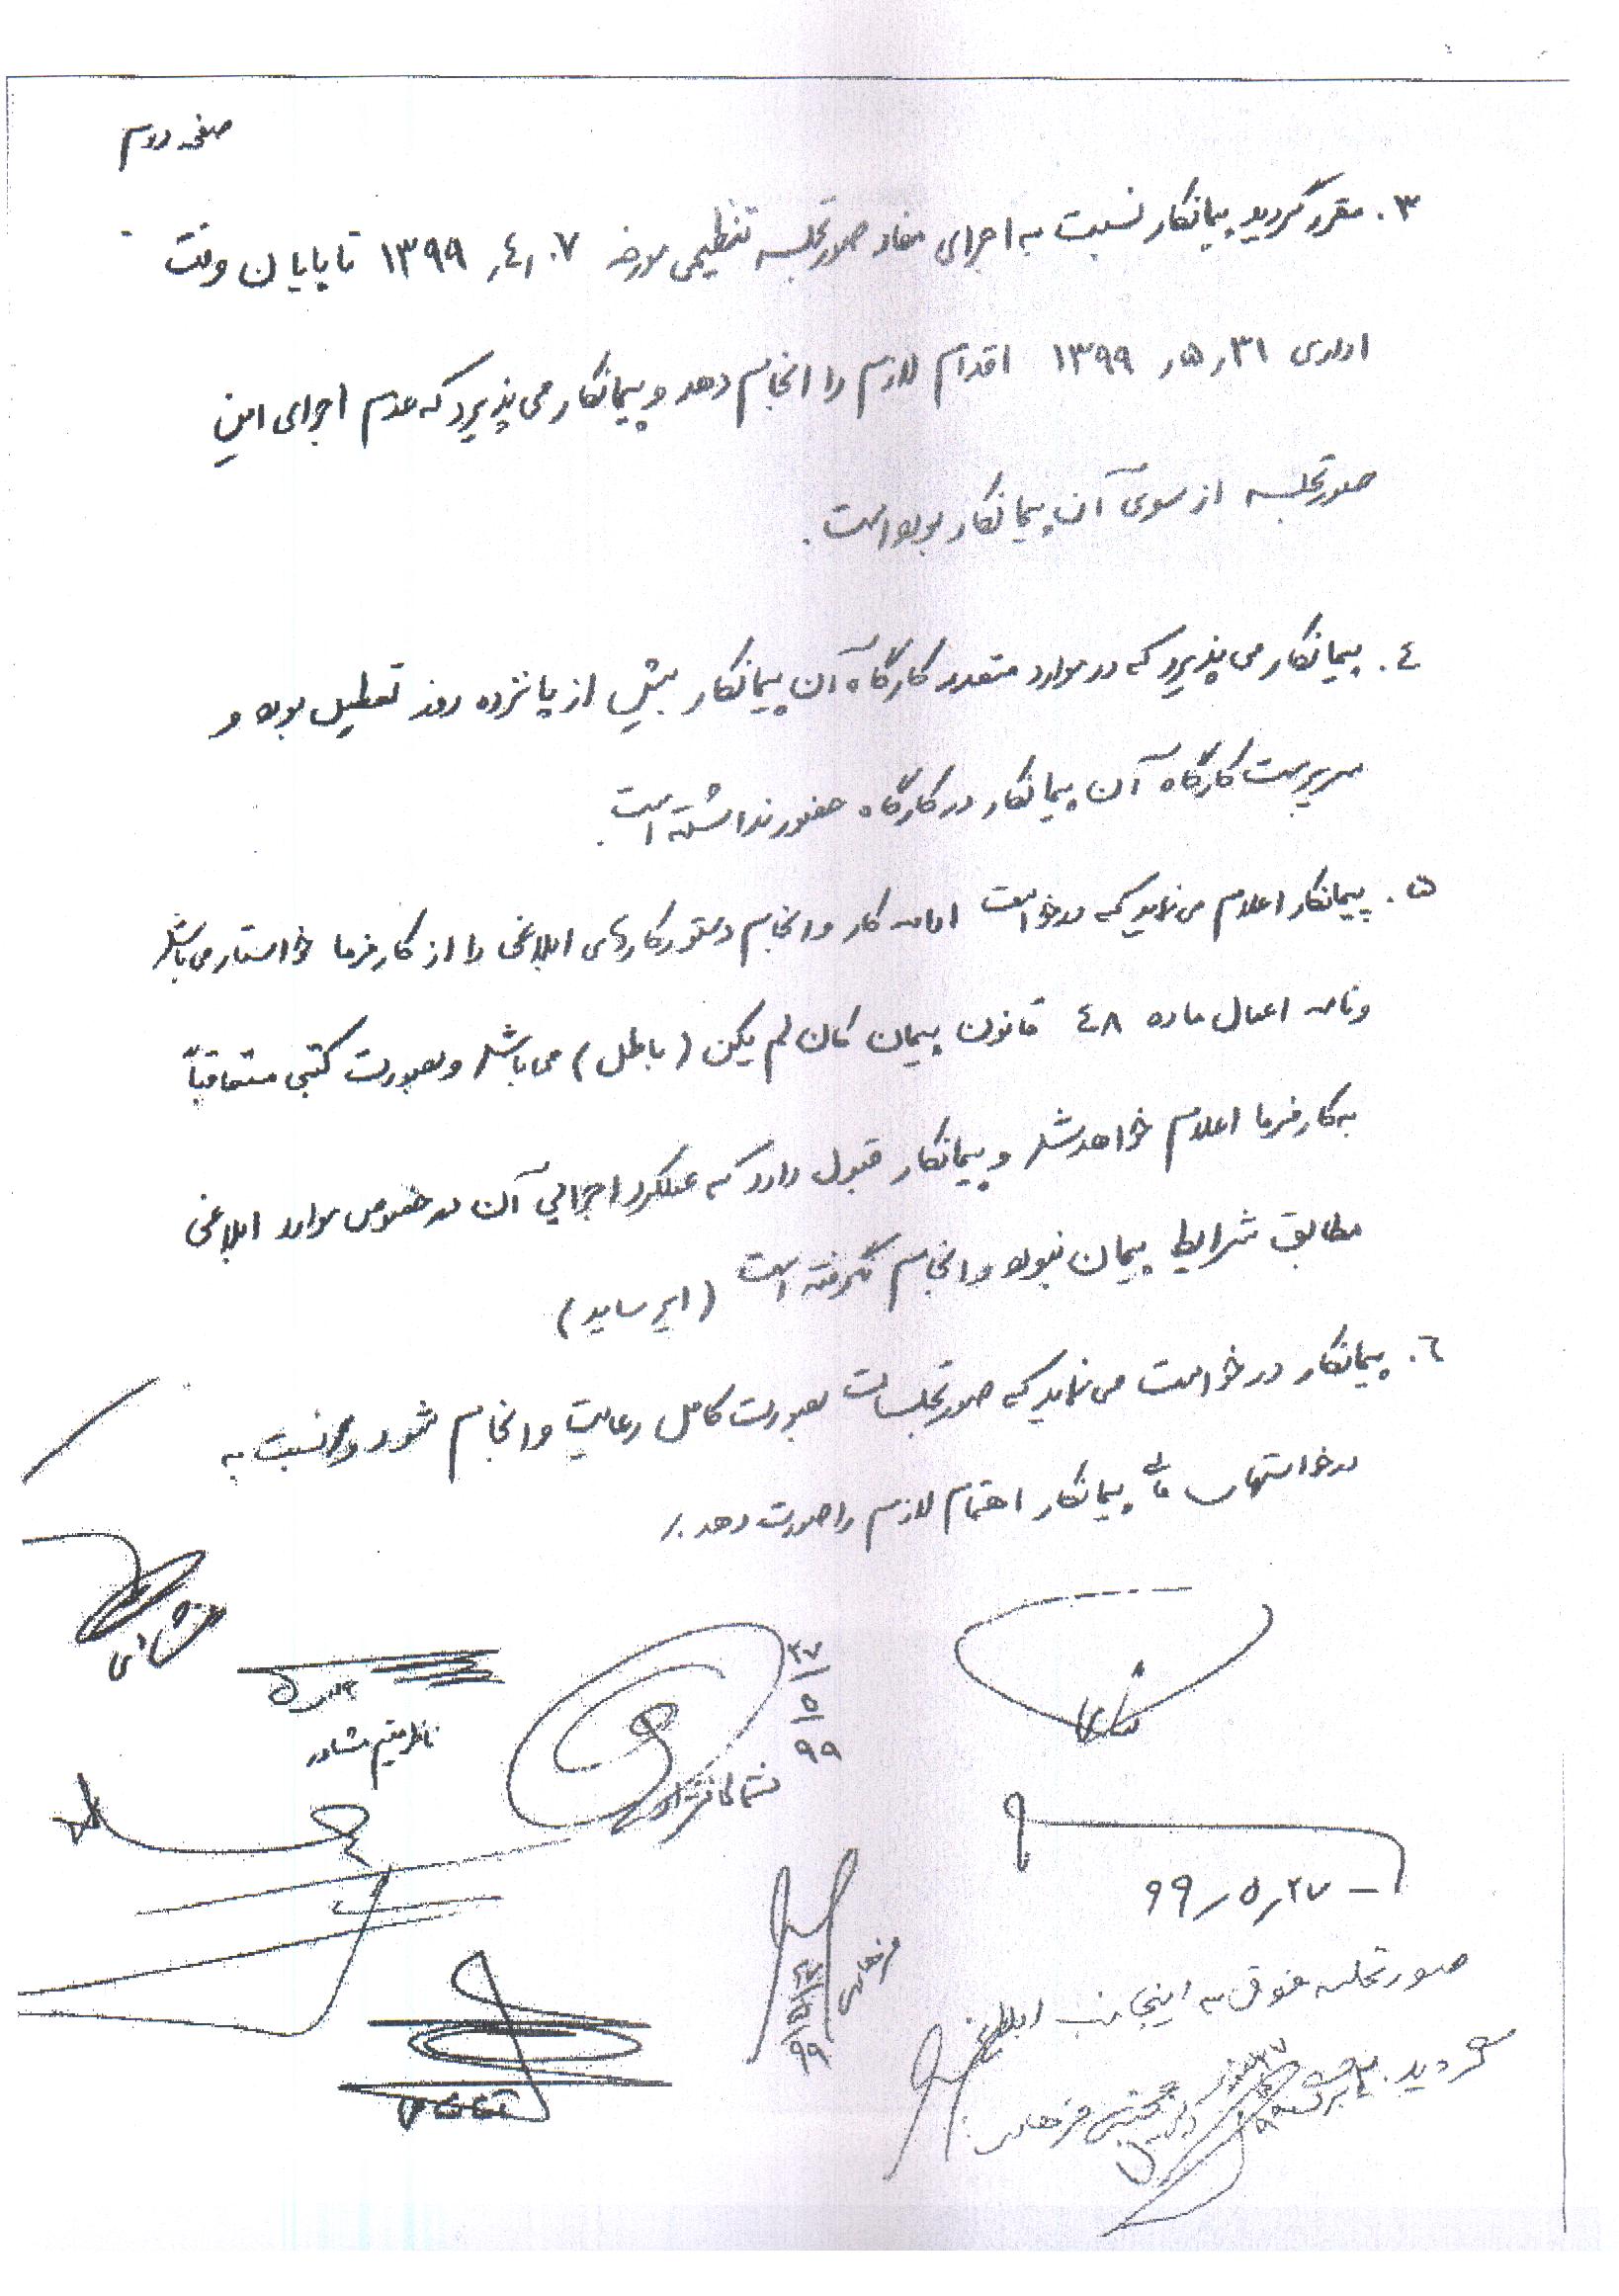 صفحه دوم
۳. مقرر گردید پیمانکار نسبت به اجرای مفاد صورتجلسه تنظیمی مورخه ۱۳۹۹٫۴٫۰۷ تا پایان وقت
اداری ۱۳۹۹٫۵٫۳۱ اقدام لازم را انجام دهد و پیمانکار می پذیرد که عدم اجرای این
صورتجلسه از سوی آن پیمانکار بوده است.
٤. پیمانکار می پذیرد که در موارد متعدد کارگاه آن پیمانکار بیش از پانزده روز تعطیل بوده و
سرپرست کارگاه آن پیمانکار در کارگاه حضور نداشته است.
۵. پیمانکار اعلام می نماید که درخواست ادامه کار و انجام دستور کارهای ابلاغی را از کارفرما خواستار می باشد
و نامه اعمال ماده ٤۸ قانون پیمان کان لم یکن (باطل) می باشد و بصورت کتبی متعاقباً
به کارفرما اعلام خواهد شد و پیمانکار قبول دارد که عملکرد اجرایی آن در خصوص موارد ابلاغی
مطابق شرایط پیمان نبوده و انجام نگرفته است (ایر ساید)
٦. پیمانکار درخواست می نماید که صورتجلسات بصورت کامل رعایت و انجام شود و نسبت به
درخواستهای مالی پیمانکار اهتمام لازم را صورت دهد ./
۲۷/۵/۹۹
ناظر مقیم مشاور
۹۹٫۵٫۲۷
فرهادی
۲۷/۵/۹۹
صورتجلسه فوق به اینجانب ابلاغ
گردید.
مجتبی فرهادی